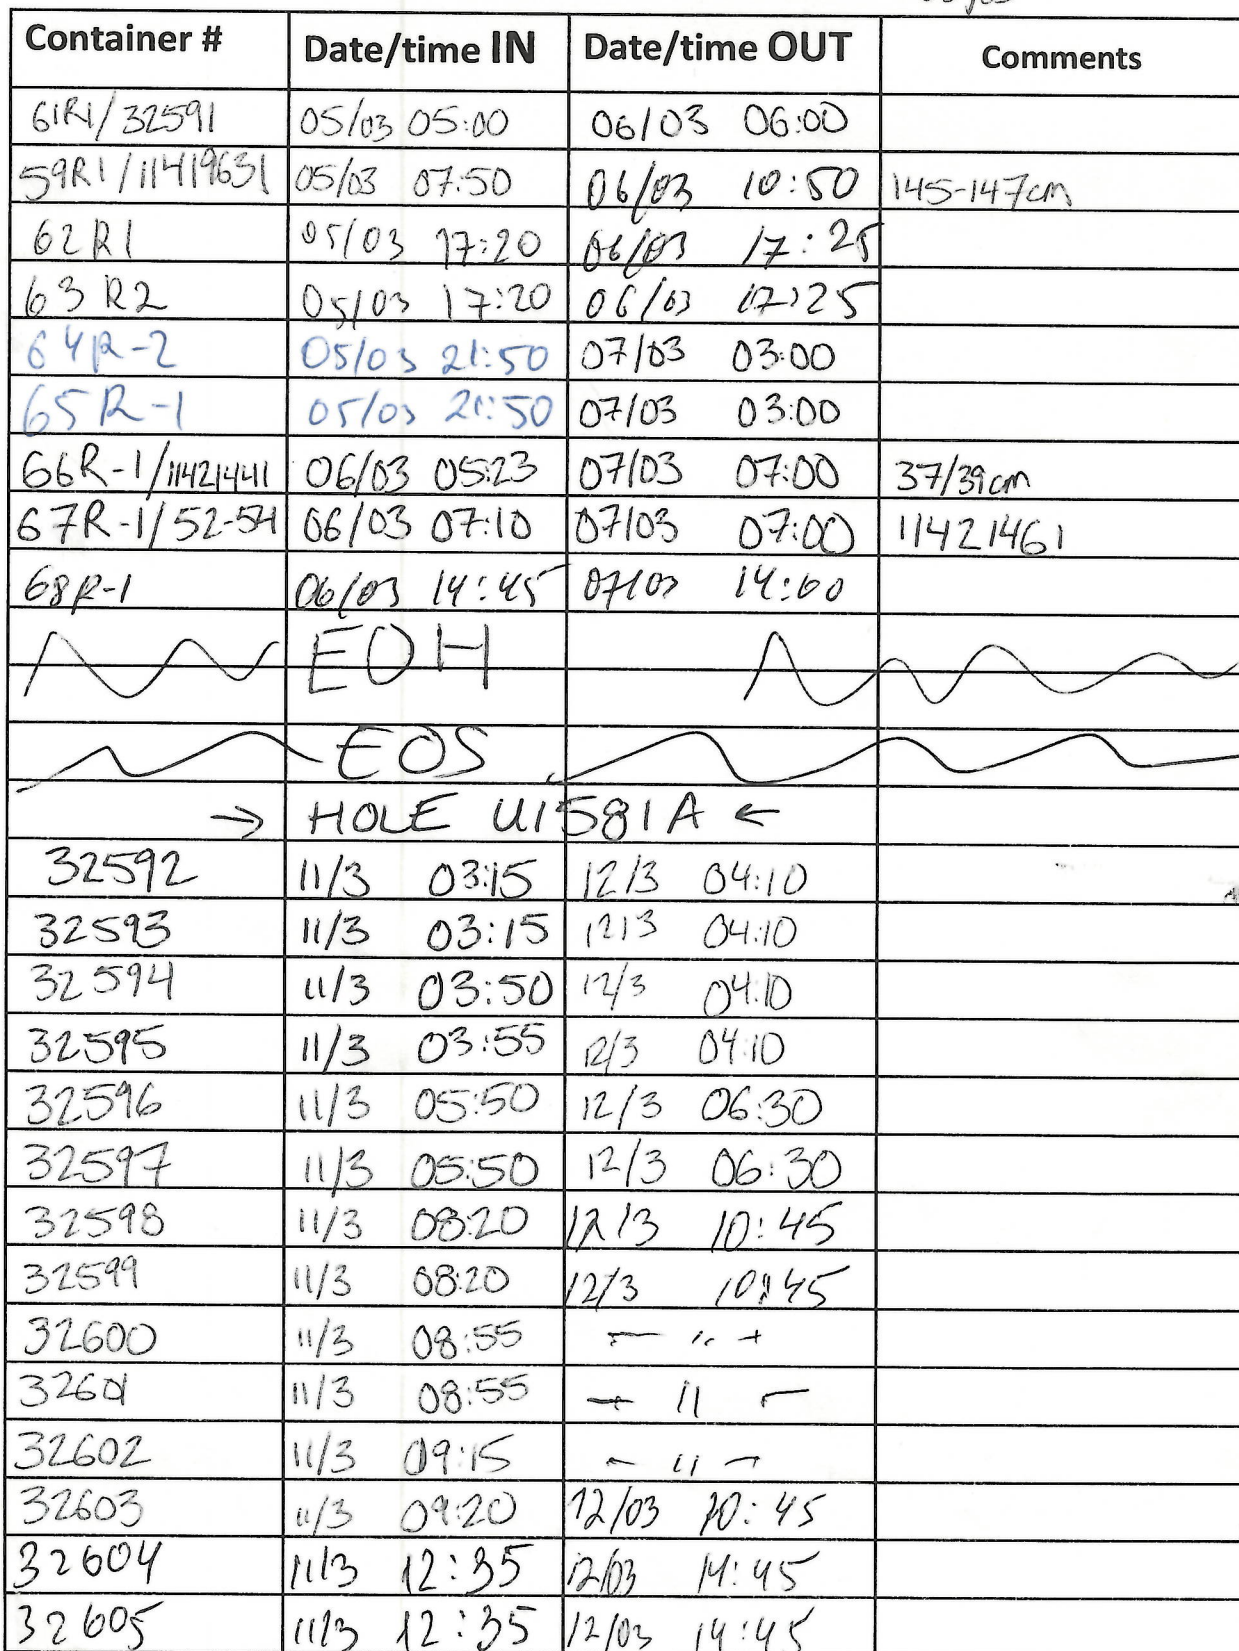 Container # Date/time IN Date/time OUT Comments
61R1/32591 05/03 05:00 06/03 06:00
59R1/11419631 05/03 07:50 06/03 10:50 145-147cm
62R1 05/03 17:20 06/03 17:25
63R2 05/03 17:20 06/03 17:25
64R-2 05/03 21:50 07/03 03:00
65R-1 05/03 21:50 07/03 03:00
66R-1/11421441 06/03 05:23 07/03 07:00 37/39cm
67R-1/52-54 06/03 07:10 07/03 07:00 11421461
68R-1 06/03 14:45 07/03 14:00
EOH
EOS
→ HOLE U1581A ←
32592 11/3 03:15 12/3 04:10
32593 11/3 03:15 12/3 04:10
32594 11/3 03:50 12/3 04:10
32595 11/3 03:55 12/3 04:10
32596 11/3 05:50 12/3 06:30
32597 11/3 05:50 12/3 06:30
32598 11/3 08:20 12/3 10:45
32599 11/3 08:20 12/3 10:45
32600 11/3 08:55 — 11 —
32601 11/3 08:55 — 11 —
32602 11/3 09:15 — 11 —
32603 11/3 09:20 12/03 10:45
32604 11/3 12:35 12/03 14:45
32605 11/3 12:35 12/03 14:45